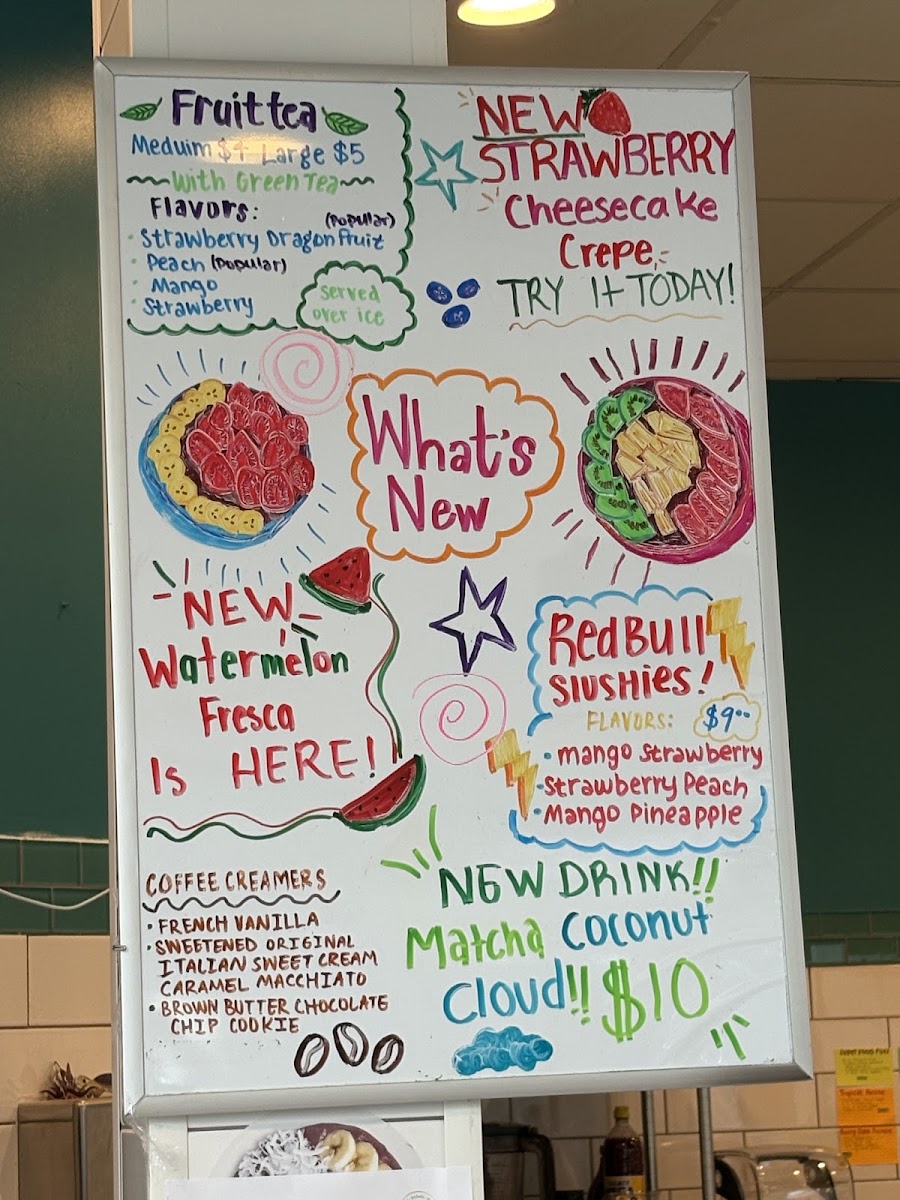 Fruit tea
Meduim $4 Large $5
With Green Tea
Flavors:
(Popular)
• Strawberry Dragonfruit
• Peach (Popular)
• Mango
• Strawberry
Served
over ice
NEW
STRAWBERRY
Cheesecake
Crepe
TRY It TODAY!
What's
New
NEW
Watermelon
Fresca
Is HERE!
RedBull
Slushies!
FLAVORS: $9.00
• mango Strawberry
• Strawberry Peach
• Mango Pineapple
COFFEE CREAMERS
• FRENCH VANILLA
• SWEETENED ORIGINAL
ITALIAN SWEET CREAM
CARAMEL MACCHIATO
• BROWN BUTTER CHOCOLATE
CHIP COOKIE
NEW DRINK!!
Matcha Coconut
Cloud!! $10